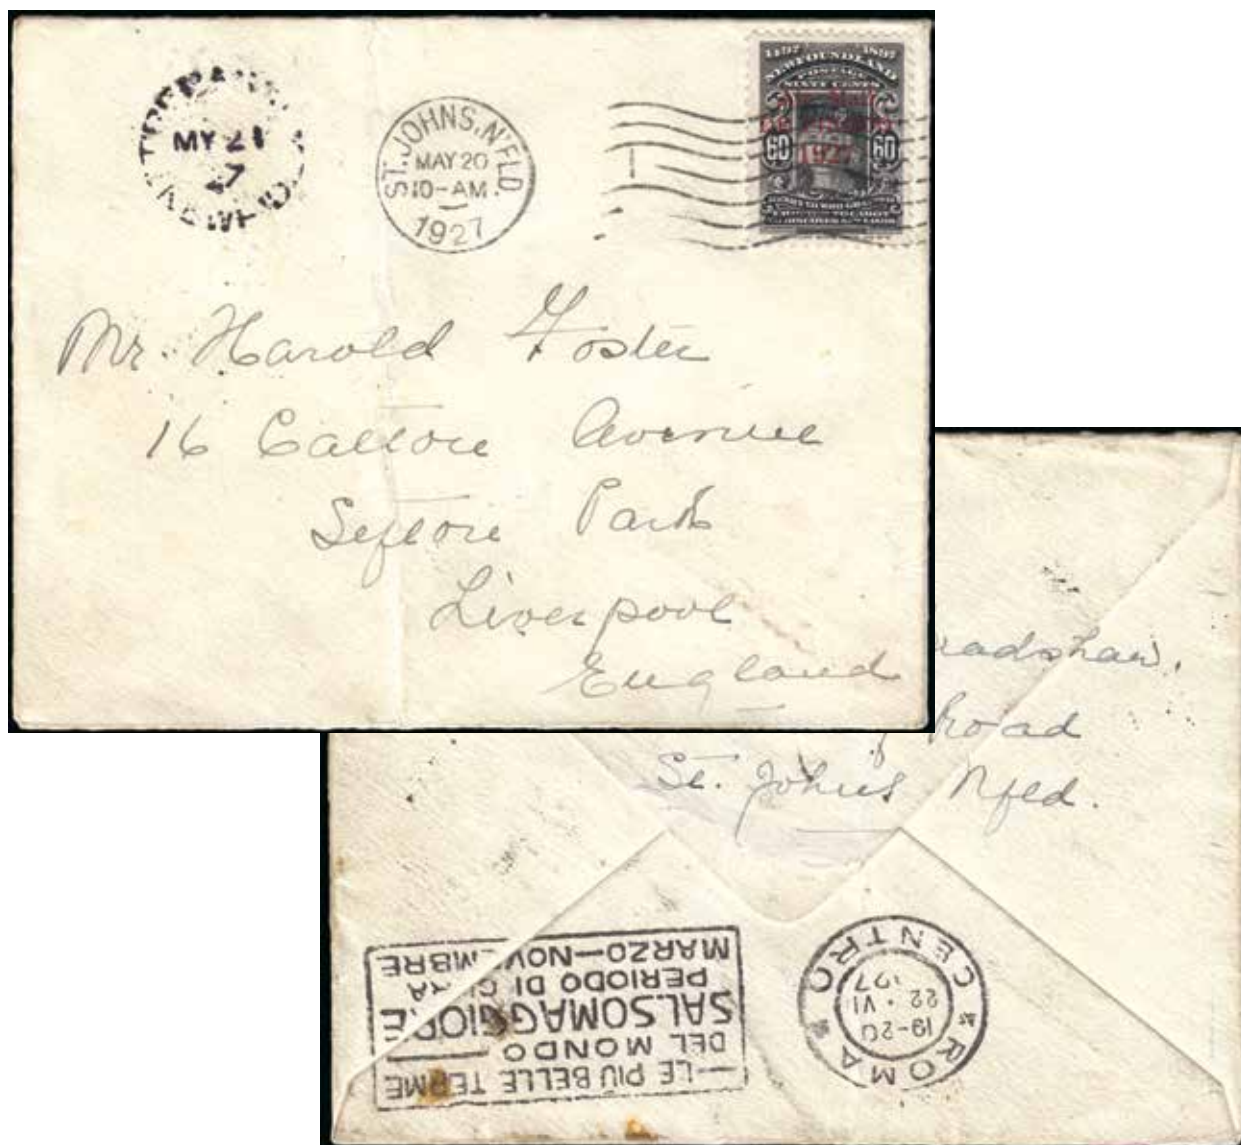 MY 21
27
NEWF'D
ST. JOHNS, N'FLD.
MAY 20
10-AM
1927
1497 1897
NEWFOUNDLAND
POSTAGE
SIXTY CENTS
1927
60 60
Mr. Harold Foster
16 Calton Avenue
Sefton Park
Liverpool
England
radshaw.
Road
St. Johns Nfld.
ROMA CENTRO
19-20
22 . VI
LE PIÙ BELLE TERME
DEL MONDO
SALSOMAGGIORE
PERIODO DI CURA
MARZO—NOVEMBRE